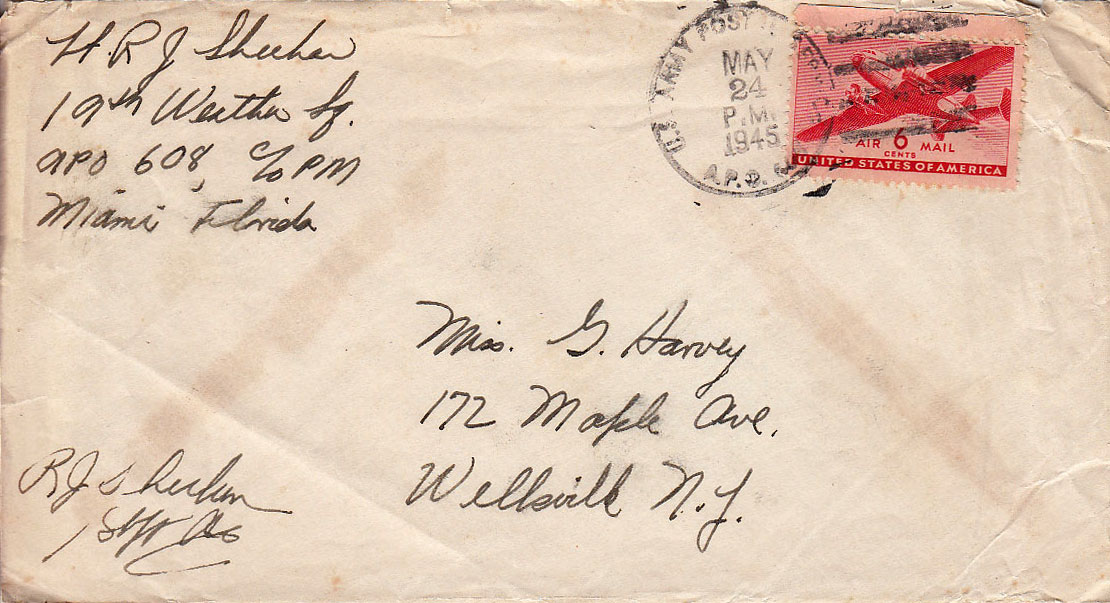 Lt. R J Sheehan
19th Weather Sq.
APO 608, c/o PM
Miami Florida
U.S. ARMY POSTAL
MAY
24
P.M.
1945
A.P.O.
AIR 6 MAIL
CENTS
UNITED STATES OF AMERICA
Miss. G. Harvey
172 Maple Ave.
Wellsville N.Y.
R J Sheehan
1st Lt AC